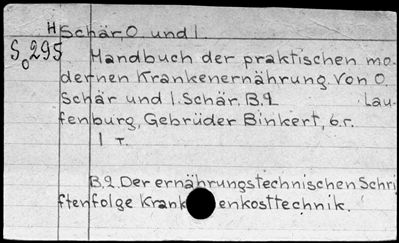 H Schär, O und I.
S₀295 Handbuch der praktischen mo-
dernen Krankenernährung. Von O.
Schär und I. Schär. B.2 Lau-
fenburg, Gebrüder Binkert, o.r.
I T.
B.2. Der ernährungstechnischen Schri
ftenfolge Krank enkosttechnik.